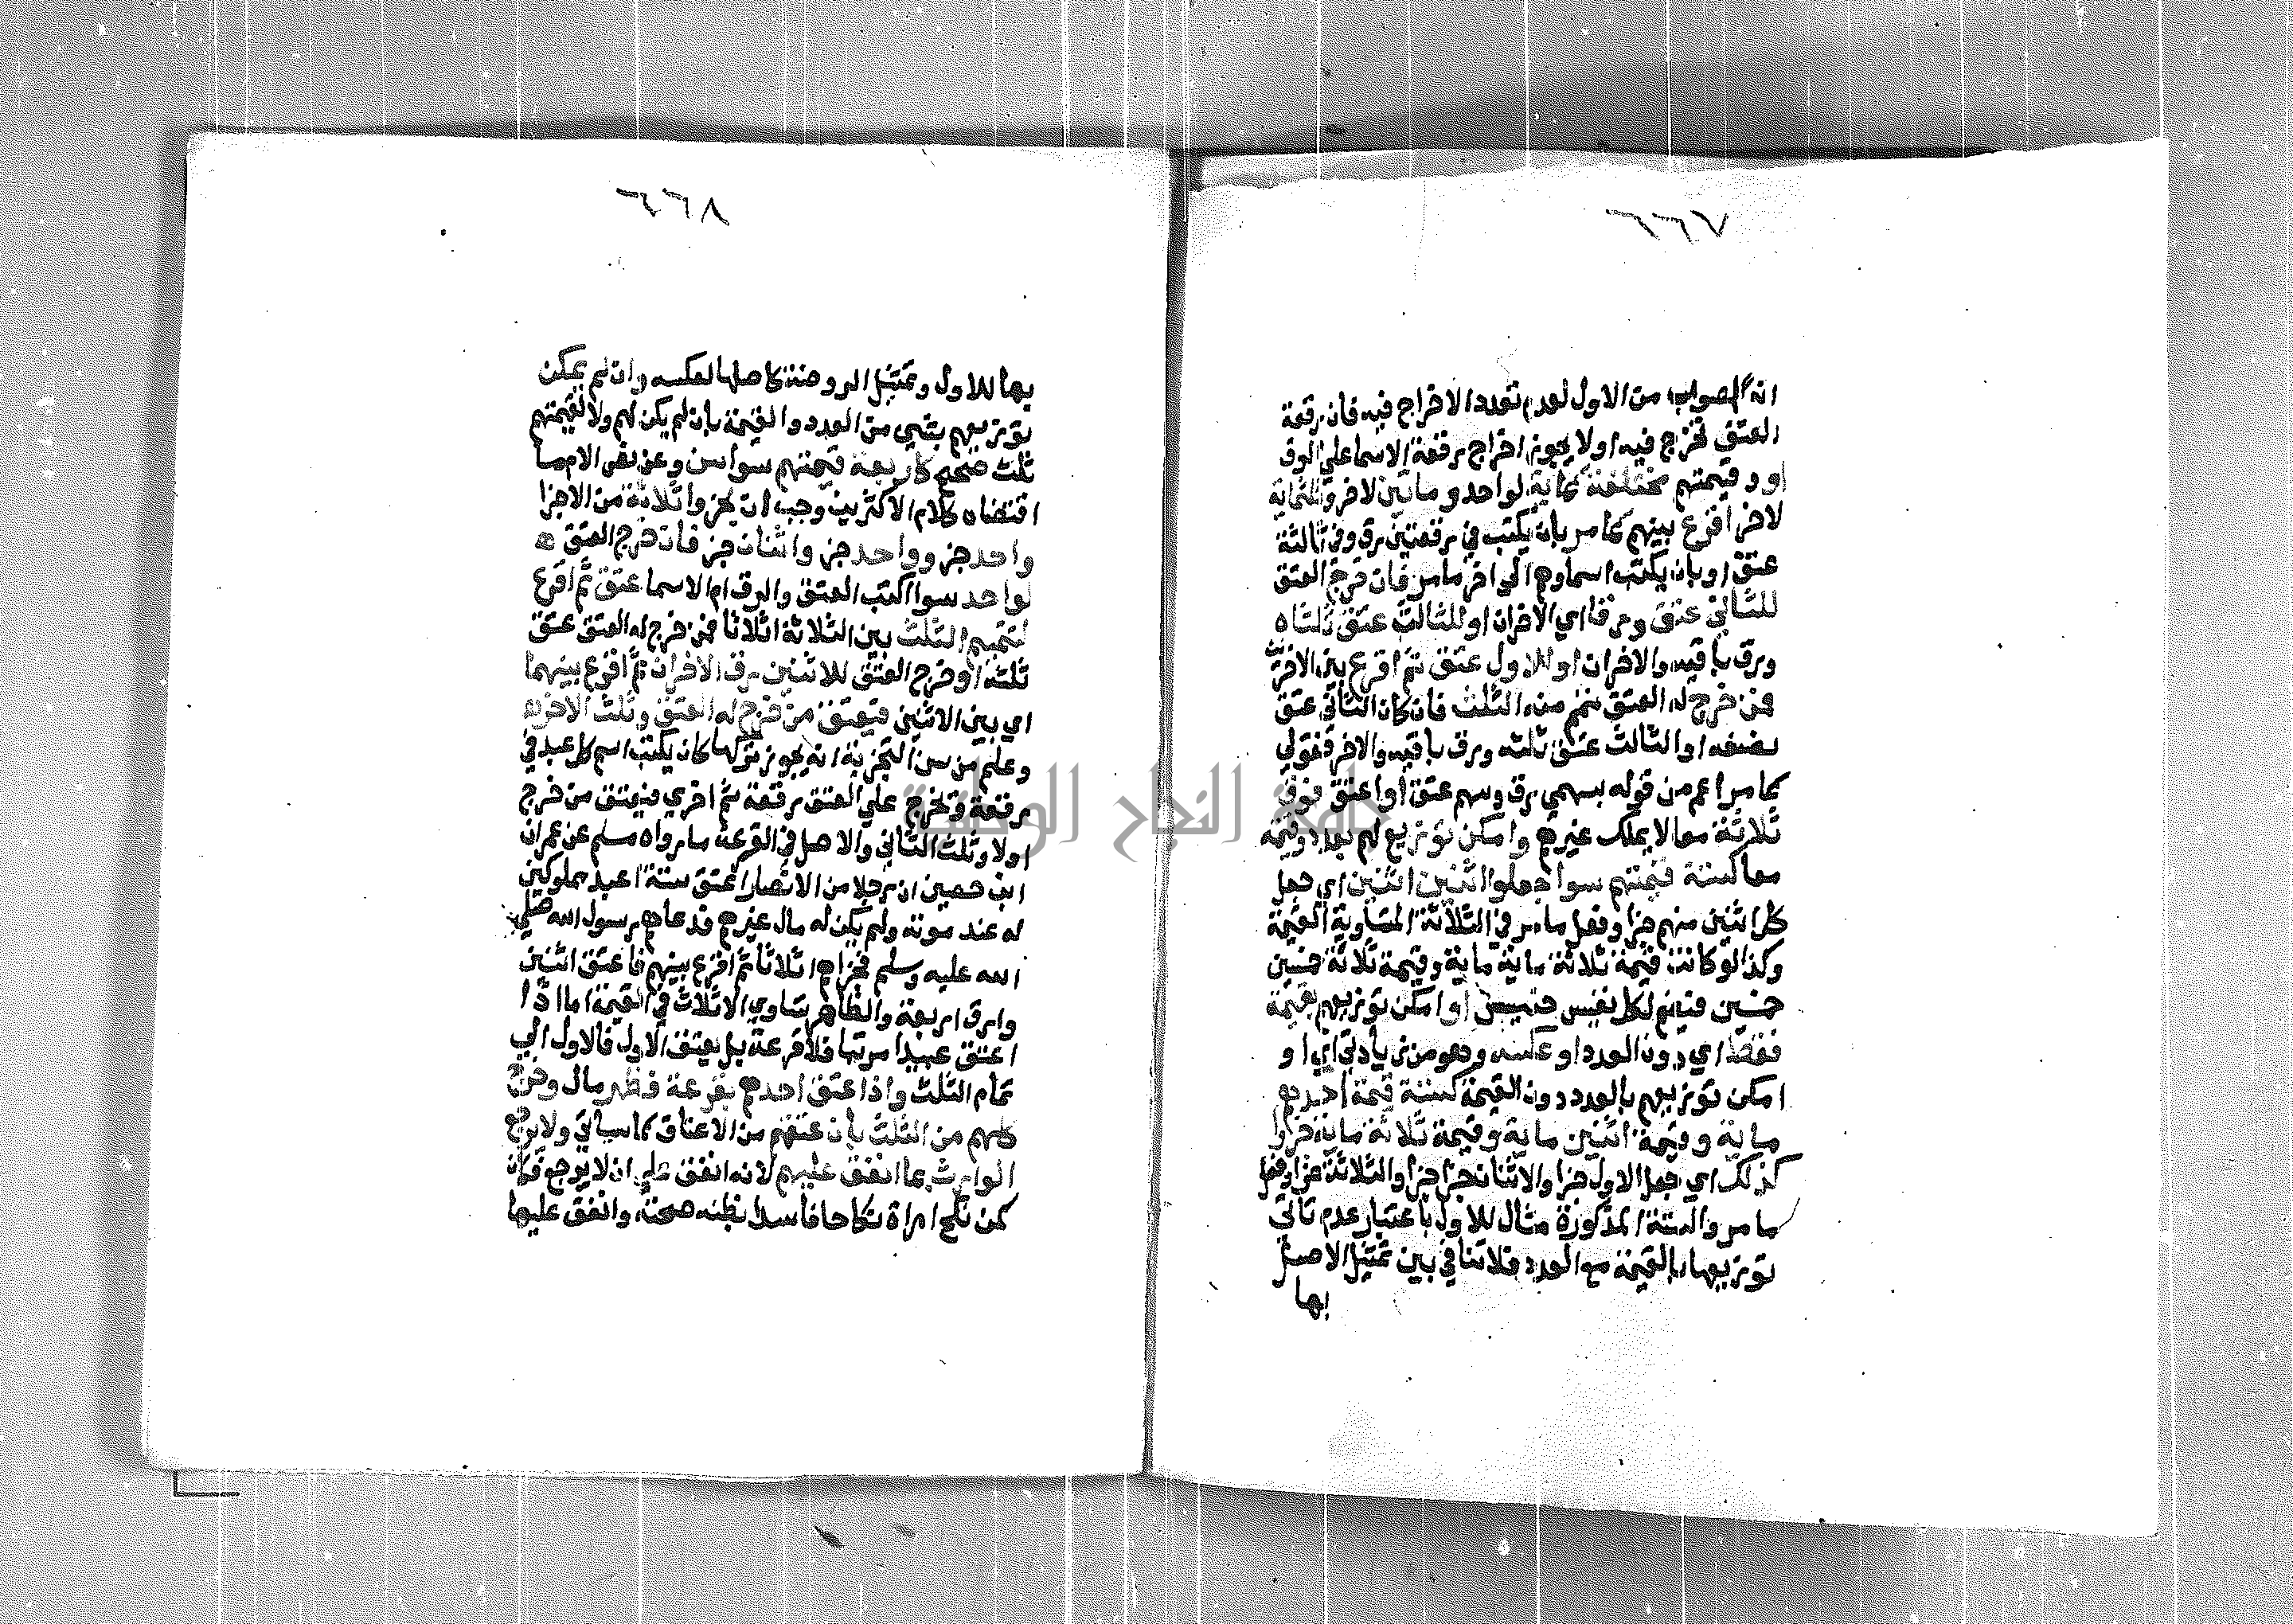 ٦٦٧
انه الصواب من الاول لعدم تعدد الاخراج فيه فان رقعة
العتق تخرج فيه اولا يجوز اخراج رقعة الاسما علي الرق
او وقيمتهم مختلفة كماية لواحد و مأتين لاخر وثلثماية
لاخر اقرع بينهم كما مر بان يكتب في رقعتين رق وفي ثالثة
عتق او بان يكتب اسماوهم الي اخر ما مر فان خرج العتق
للثاني عتق ورقا اي الاخران او للثالث عتق ثلثاه
ورق باقيه والاخران او للاول عتق ثم اقرع بين الاخرين
فمن خرج له العتق تمم منه الثلث فان كان الثاني عتق
نصفه او الثالث عتق ثلثه ورق باقيه والاخر فقولي
كما مر اعم من قوله بسهمي رق وسهم عتق او اعتق فوق
ثلاثة معا لا يملك غيرهم وامكن توزيع لهم بعدد وقيمة
معا كستة قيمتهم سوا جعلوا اثنين اثنين اي جعل
كل اثنين منهم جزا وفعل ما مر في الثلاثة المتساوية القيمة
وكذا لو كانت قيمة ثلاثة ماية ماية وقيمة ثلاثة خمسين
خمسين فيضم لكل نفيس خسيس او امكن توزيعهم بقيمة
فقط اي دون العدد او عكسه وهو من زيادتي اي او
امكن توزيعهم بالعدد دون القيمة كستة قيمة احدهم
ماية وقيمة اثنين ماية وقيمة ثلاثة ماية جزوا
كذلك اي جعل الاول جزا والاثنان جزا والثلاثة جزا وفعل
ما مر والستة المذكورة مثال للاول باعتبار عدم تاتي
توزيعها بالقيمة مع العدد فلا تنافي بين تمثيل الاصل
بها
٦٦٨
بها للاول وتمثيل الروضة كاصلها لعكسه وان لم يمكن
توزيعهم بشي من العدد والقيمة بان لم يكن لهم ولا لقيمتهم
ثلث صحيح كاربعة قيمتهم سوا سن وعن نص الام ما
اقتضاه كلام الاكثرين وجب ان يجزوا ثلاثة من الاجزا
واحد جز وواحد جز واثنان جز فان خرج العتق
لواحد سوا اكتب العتق والرق ام الاسما عتق ثم اقرع
لتتميم الثلث بين الثلاثة اثلاثا فمن خرج له العتق عتق
ثلثه او خرج العتق للاثنين رق الاخران ثم اقرع بينهما
اي بين الاثنين فيعتق من خرج له العتق وثلث الاخر
وعلم من سن التجزية انه يجوز تركها كان يكتب اسم كل عبد في
رقعة وتخرج علي العتق رقعة ثم اخري فيعتق من خرج
اولا وثلث الثاني والاصل في القرعة ما رواه مسلم عن عمران
ابن حصين ان رجلا من الانصار اعتق ستة اعبد مملوكين
له عند موته ولم يكن له مال غيرهم فدعاهم رسول الله صلي
الله عليه وسلم فجزاهم اثلاثا ثم اقرع بينهم فاعتق اثنين
وارق اربعة والظاهر تساوي الاثلاث في القيمة اما اذا
اعتق عبيدا مرتبا فلا قرعة بل يعتق الاول فالاول الي
تمام الثلث واذا عتق احدهم بقرعة فظهر مال وخرج
كلهم من الثلث بان عتقهم من الاعتاق كما سياتي ولا يرجع
الوارث بما انفق عليهم لانه انفق علي ان لا يرجع فكان
كمن نكح امراة نكاحا فاسدا بظنه صحته وانفق عليها